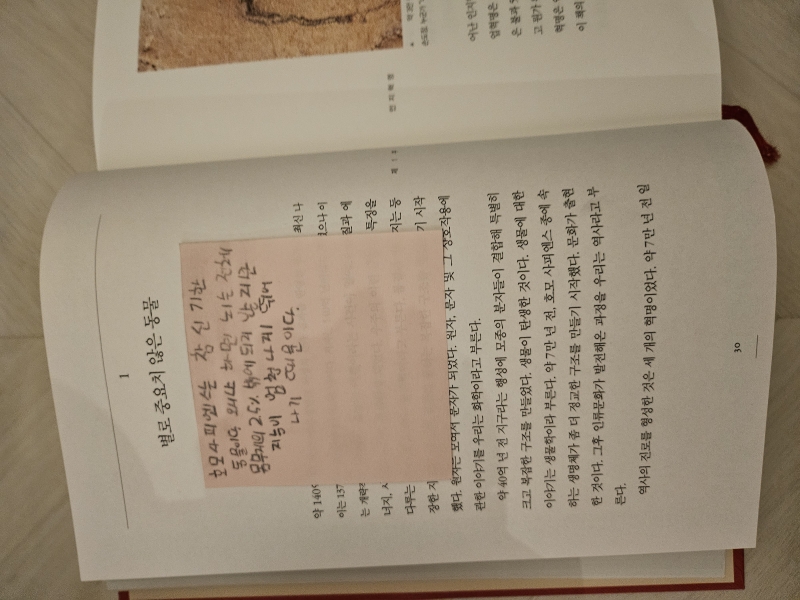 1
별로 중요치 않은 동물
호모사피엔스는 참 신기한
동물이다 왜냐 하면 뇌는 전체
몸무게의 2.5% 밖에 되지 않지만
지능이 엄청나게 뛰어
나기 때문이다.
약 140 최신 나
이는 137 으나 이
는 개략 질과 에
너지, 특징을
다루는 지는 등
장한 지 기 시작
했다. 원자는 모여서 분자가 되었다. 원자, 분자 및 그 상호작용에
관한 이야기를 우리는 화학이라고 부른다.
약 40억 년 전 지구라는 행성에 모종의 분자들이 결합해 특별히
크고 복잡한 구조를 만들었다. 생물이 탄생한 것이다. 생물에 대한
이야기는 생물학이라 부른다. 약 7만 년 전, 호모 사피엔스 종에 속
하는 생명체가 좀 더 정교한 구조를 만들기 시작했다. 문화가 출현
한 것이다. 그후 인류문화가 발전해온 과정을 우리는 역사라고 부
른다.
역사의 진로를 형성한 것은 세 개의 혁명이었다. 약 7만 년 전 일
30
제1부 인지혁명
어난 인지
업혁명은
은 불과
고 뭔가
혁명은
이 책의